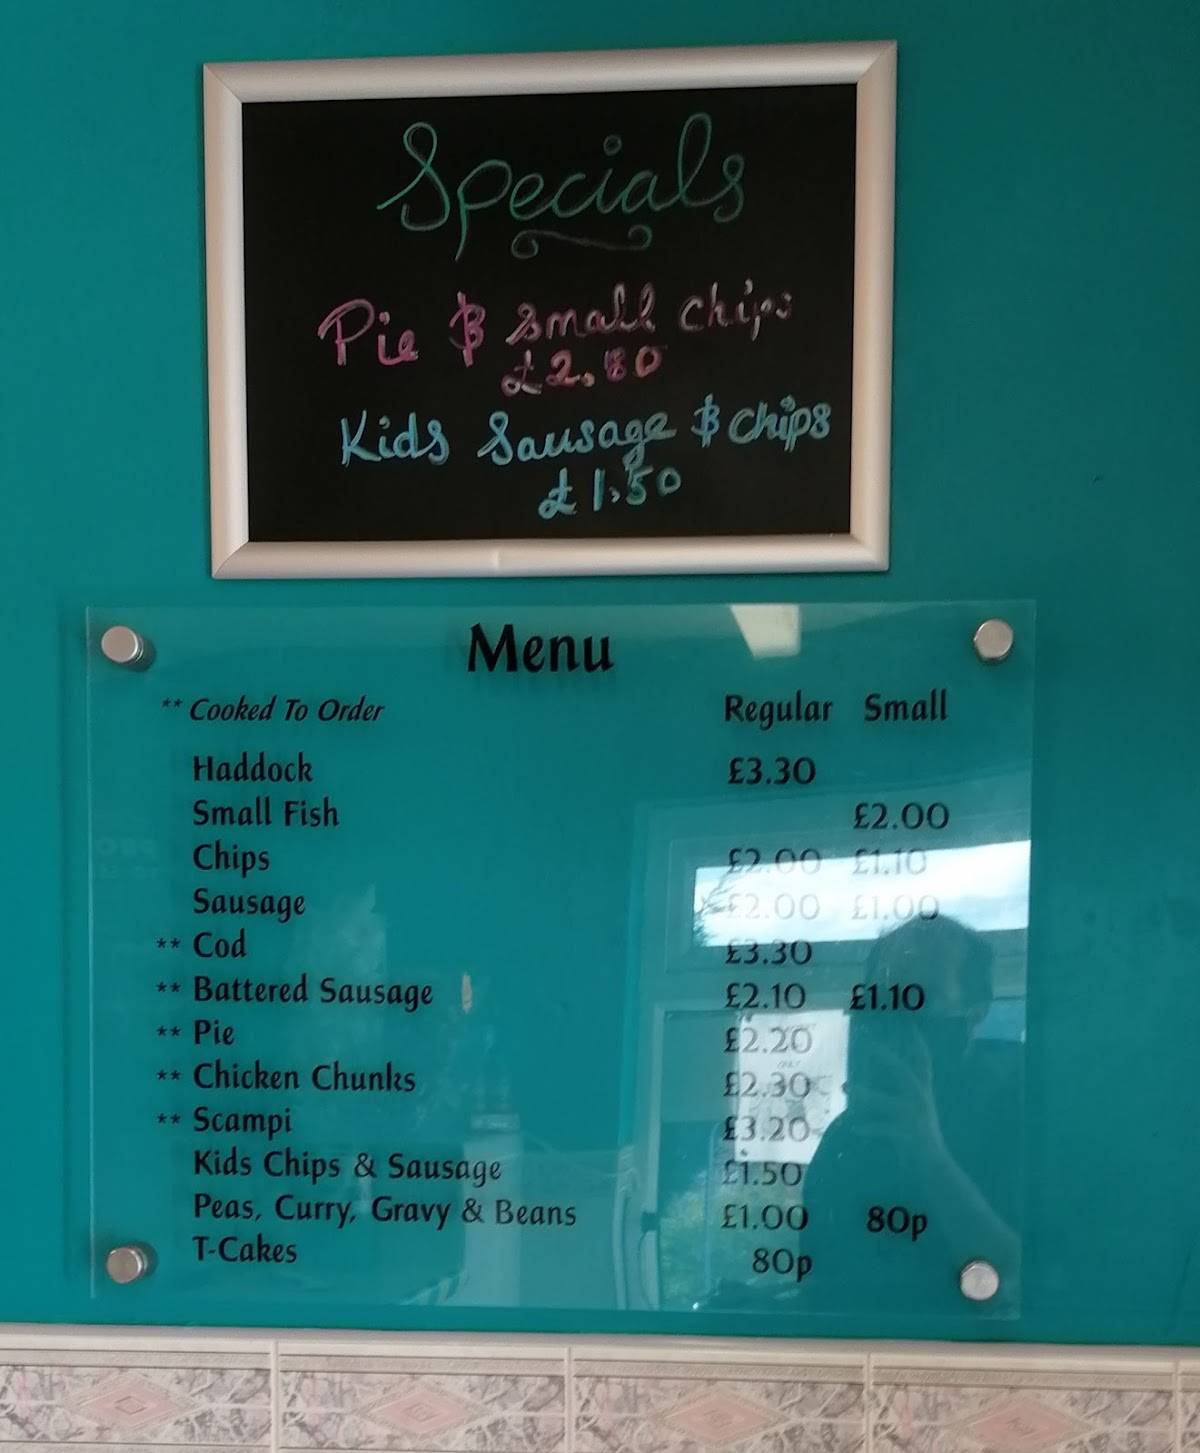 Specials
Pie & Small Chips
£2.80
Kids Sausage & Chips
£1.50
Menu
** Cooked To Order Regular Small
Haddock £3.30
Small Fish £2.00
Chips £2.00 £1.10
Sausage £2.00 £1.00
** Cod £3.30
** Battered Sausage £2.10 £1.10
** Pie £2.20
** Chicken Chunks £2.30
** Scampi £3.20
Kids Chips & Sausage £1.50
Peas, Curry, Gravy & Beans £1.00 80p
T-Cakes 80p